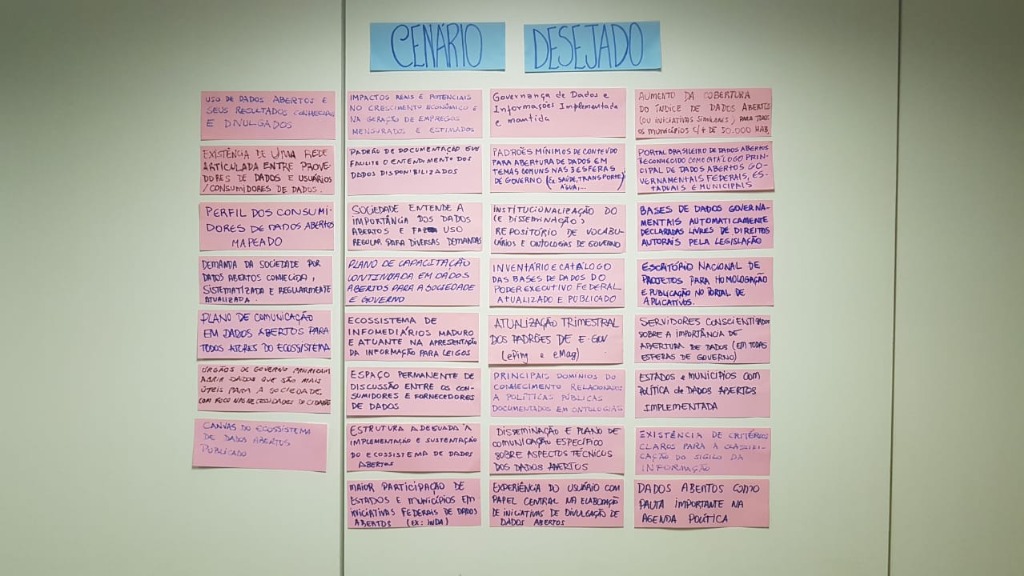 CENÁRIO DESEJADO
USO DE DADOS ABERTOS E
SEUS RESULTADOS CONHECIDOS
E DIVULGADOS
EXISTÊNCIA DE UMA REDE
ARTICULADA ENTRE PROVE-
DORES DE DADOS E USUÁRIOS
/CONSUMIDORES DE DADOS.
PERFIL DOS CONSUMI-
DORES DE DADOS ABERTOS
MAPEADO
DEMANDA DA SOCIEDADE POR
DADOS ABERTOS CONHECIDA,
SISTEMATIZADA E REGULARMENTE
ATUALIZADA.
PLANO DE COMUNICAÇÃO
EM DADOS ABERTOS PARA
TODOS ATORES DO ECOSSISTEMA
ÓRGÃOS DE GOVERNO PRIORIZAM
ABRIR DADOS QUE SÃO MAIS
ÚTEIS PARA A SOCIEDADE,
COM FOCO NAS NECESSIDADES DO CIDADÃO
CANVAS DO ECOSSISTEMA
DE DADOS ABERTOS
PUBLICADO
IMPACTOS REAIS E POTENCIAIS
NO CRESCIMENTO ECONÔMICO E
NA GERAÇÃO DE EMPRESAS
MENSURADOS E ESTIMADOS
PADRÃO DE DOCUMENTAÇÃO QUE
FACILITE O ENTENDIMENTO DOS
DADOS DISPONIBILIZADOS
SOCIEDADE ENTENDE A
IMPORTÂNCIA DOS DADOS
ABERTOS E FAZ USO
REGULAR PARA DIVERSAS DEMANDAS
PLANO DE CAPACITAÇÃO
CONTINUADA EM DADOS
ABERTOS PARA A SOCIEDADE
E GOVERNO
ECOSSISTEMA DE
INFOMEDIÁRIOS MADURO
E ATUANTE NA APRESENTAÇÃO
DA INFORMAÇÃO PARA LEIGOS
ESPAÇO PERMANENTE DE
DISCUSSÃO ENTRE OS CON-
SUMIDORES E FORNECEDORES
DE DADOS
ESTRUTURA ADEQUADA À
IMPLEMENTAÇÃO E SUSTENTAÇÃO
DO ECOSSISTEMA DE DADOS
ABERTOS
MAIOR PARTICIPAÇÃO DE
ESTADOS E MUNICÍPIOS EM
INICIATIVAS FEDERAIS DE DADOS
ABERTOS (EX: INDA)
Governança de Dados e
Informações Implementada
e mantida
PADRÕES MÍNIMOS DE CONTEÚDO
PARA ABERTURA DE DADOS EM
TEMAS COMUNS NAS 3 ESFERAS
DE GOVERNO (Ex. SAÚDE, TRANSPORTE,
ÁGUA,...)
INSTITUCIONALIZAÇÃO DO
(E DISSEMINAÇÃO)
REPOSITÓRIO DE VOCABU-
LÁRIOS E ONTOLOGIAS DE GOVERNO
INVENTÁRIO E CATÁLOGO
DAS BASES DE DADOS DO
PODER EXECUTIVO FEDERAL
ATUALIZADO E PUBLICADO
ATUALIZAÇÃO TRIMESTRAL
DOS PADRÕES DE E-GOV
(ePing e eMag)
PRINCIPAIS DOMÍNIOS DO
CONHECIMENTO RELACIONADOS
A POLÍTICAS PÚBLICAS
DOCUMENTADOS EM ONTOLOGIAS
DISSEMINAÇÃO E PLANO DE
COMUNICAÇÃO ESPECÍFICO
SOBRE ASPECTOS TÉCNICOS
DOS DADOS ABERTOS
EXPERIÊNCIA DO USUÁRIO COM
PAPEL CENTRAL NA ELABORAÇÃO
DE INICIATIVAS DE DIVULGAÇÃO DE
DADOS ABERTOS
AUMENTO DA COBERTURA
DO ÍNDICE DE DADOS ABERTOS
(OU INICIATIVAS SIMILARES) PARA TODOS
OS MUNICÍPIOS C/ + DE 20.000 HAB.
PORTAL BRASILEIRO DE DADOS ABERTOS
RECONHECIDO COMO CATÁLOGO PRIN-
CIPAL DE DADOS ABERTOS GO-
VERNAMENTAIS FEDERAIS, ES-
TADUAIS E MUNICIPAIS
BASES DE DADOS GOVERNA-
MENTAIS AUTOMATICAMENTE
DECLARADAS LIVRES DE DIREITOS
AUTORAIS PELA LEGISLAÇÃO
ESCRITÓRIO NACIONAL DE
PROJETOS PARA HOMOLOGAÇÃO
E PUBLICAÇÃO NO PORTAL DE
APLICATIVOS.
SERVIDORES CONSCIENTIZADOS
SOBRE A IMPORTÂNCIA DE
ABERTURA DE DADOS (EM TODAS
ESFERAS DE GOVERNO)
ESTADOS e MUNICÍPIOS COM
POLÍTICA DE DADOS ABERTOS
IMPLEMENTADA
EXISTÊNCIA DE CRITÉRIOS
CLAROS PARA A CLASSIFI-
CAÇÃO DO SIGILO DA
INFORMAÇÃO
DADOS ABERTOS COMO
PAUTA IMPORTANTE NA
AGENDA POLÍTICA